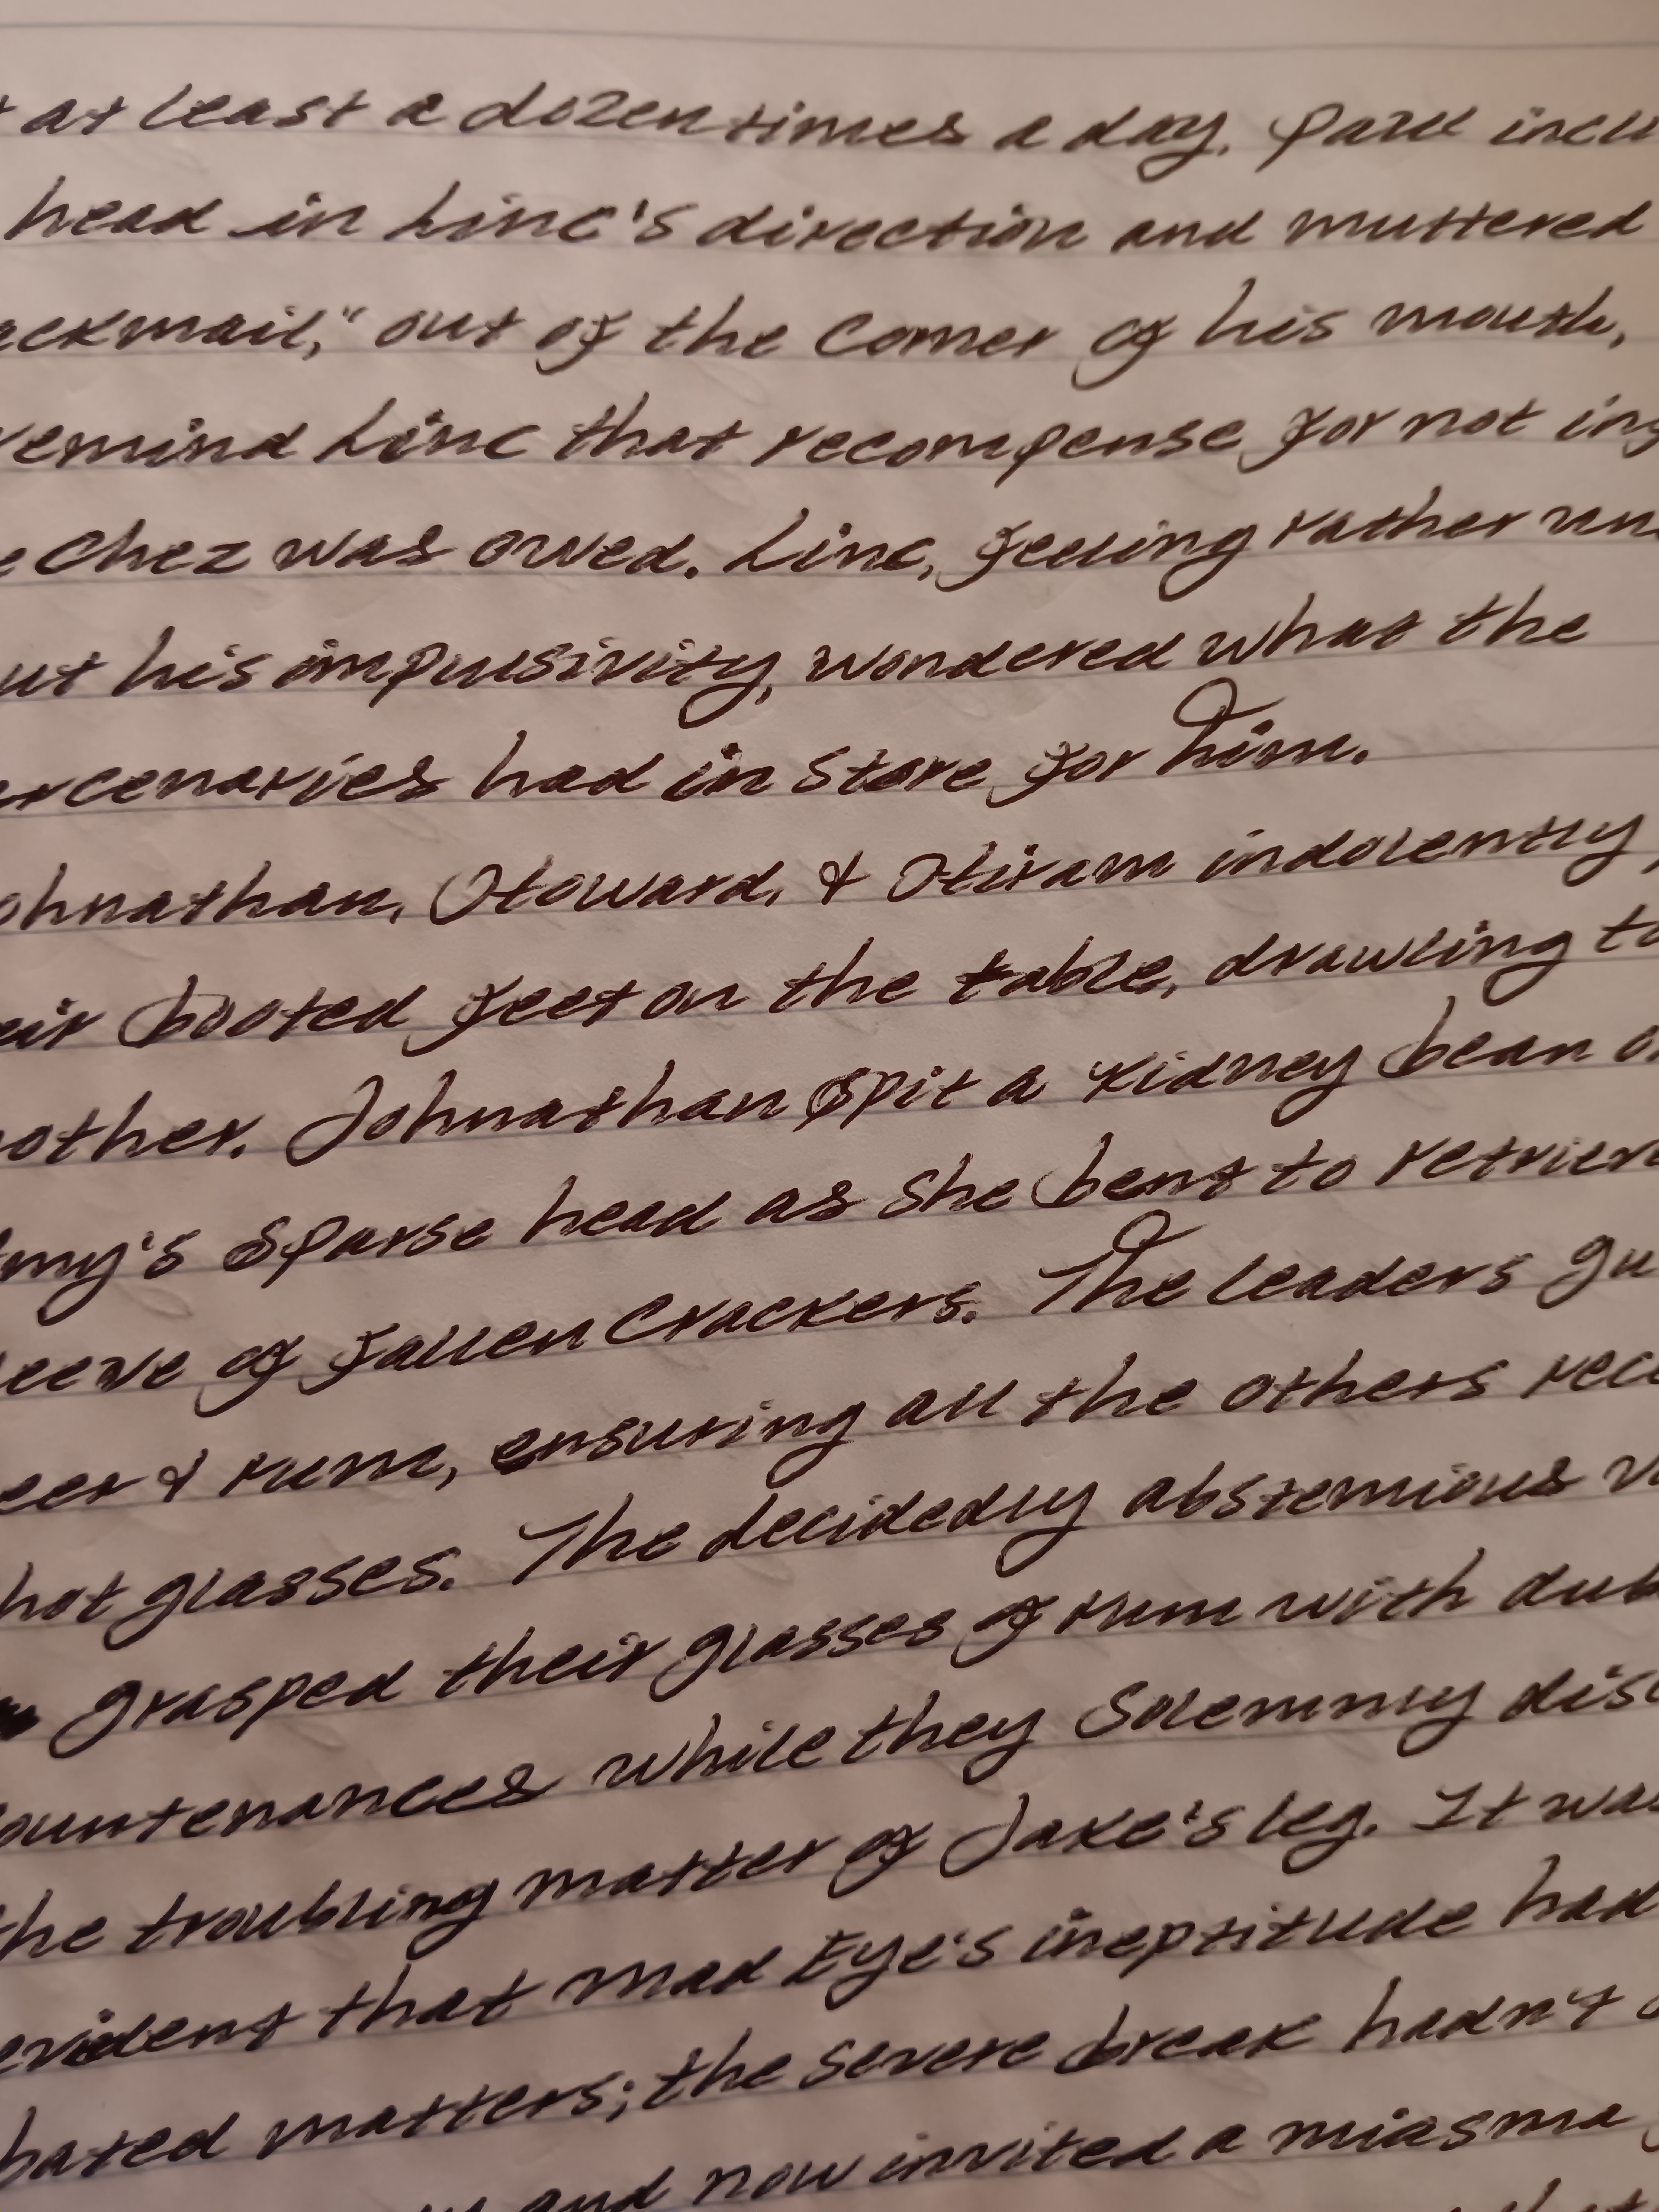 at least a dozen times a day. Paul incli
head in Linc's direction and muttered
ackmail," out of the corner of his mouth,
remind Linc that recompense for not ing
e Chez was owed. Linc, feeling rather un
ut his impulsivity, wondered what the
ercenaries had in store for him.
ohnathan, Howard, & Hiram indolently,
eir booted feet on the table, drawling to
nother. Johnathan spit a kidney bean o
my's sparse head as she bent to retrieve
leeve of fallen crackers. The leaders gu
eer & rum, ensuring all the others rece
hot glasses. The decidedly abstemious
grasped their glasses of rum with dub
ountenances while they solemnly disc
the troubling matter of Jake's leg. It was
evident that Mad Eye's ineptitude had
bated matters; the severe break hadn't
and now invited a miasma